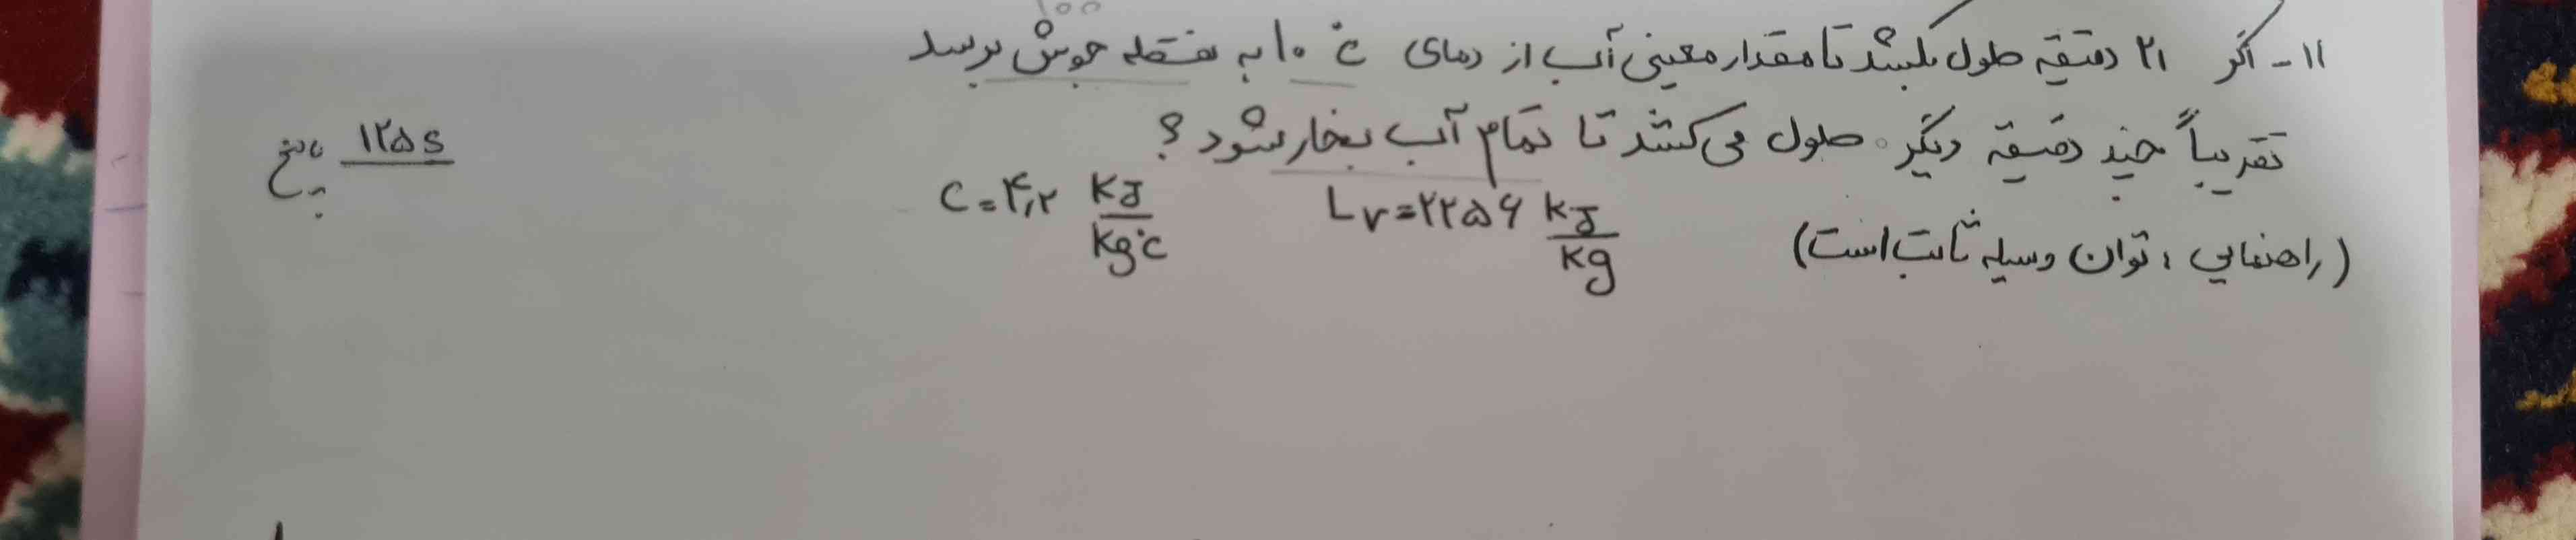 ۱۰۰
۱۱- اگر ۲۱ دقیقه طول بکشد تا مقدار معینی آب از دمای ۱۰°C به نقطه جوش برسد
تقریباً چند دقیقه دیگر طول می‌کشد تا تمام آب بخار شود؟
پاسخ ۱۲۵s
Lv=۲۲۵۶ kJ/kg C=۴,۲ kJ/kg°C
(راهنمایی: توان وسیله ثابت است)